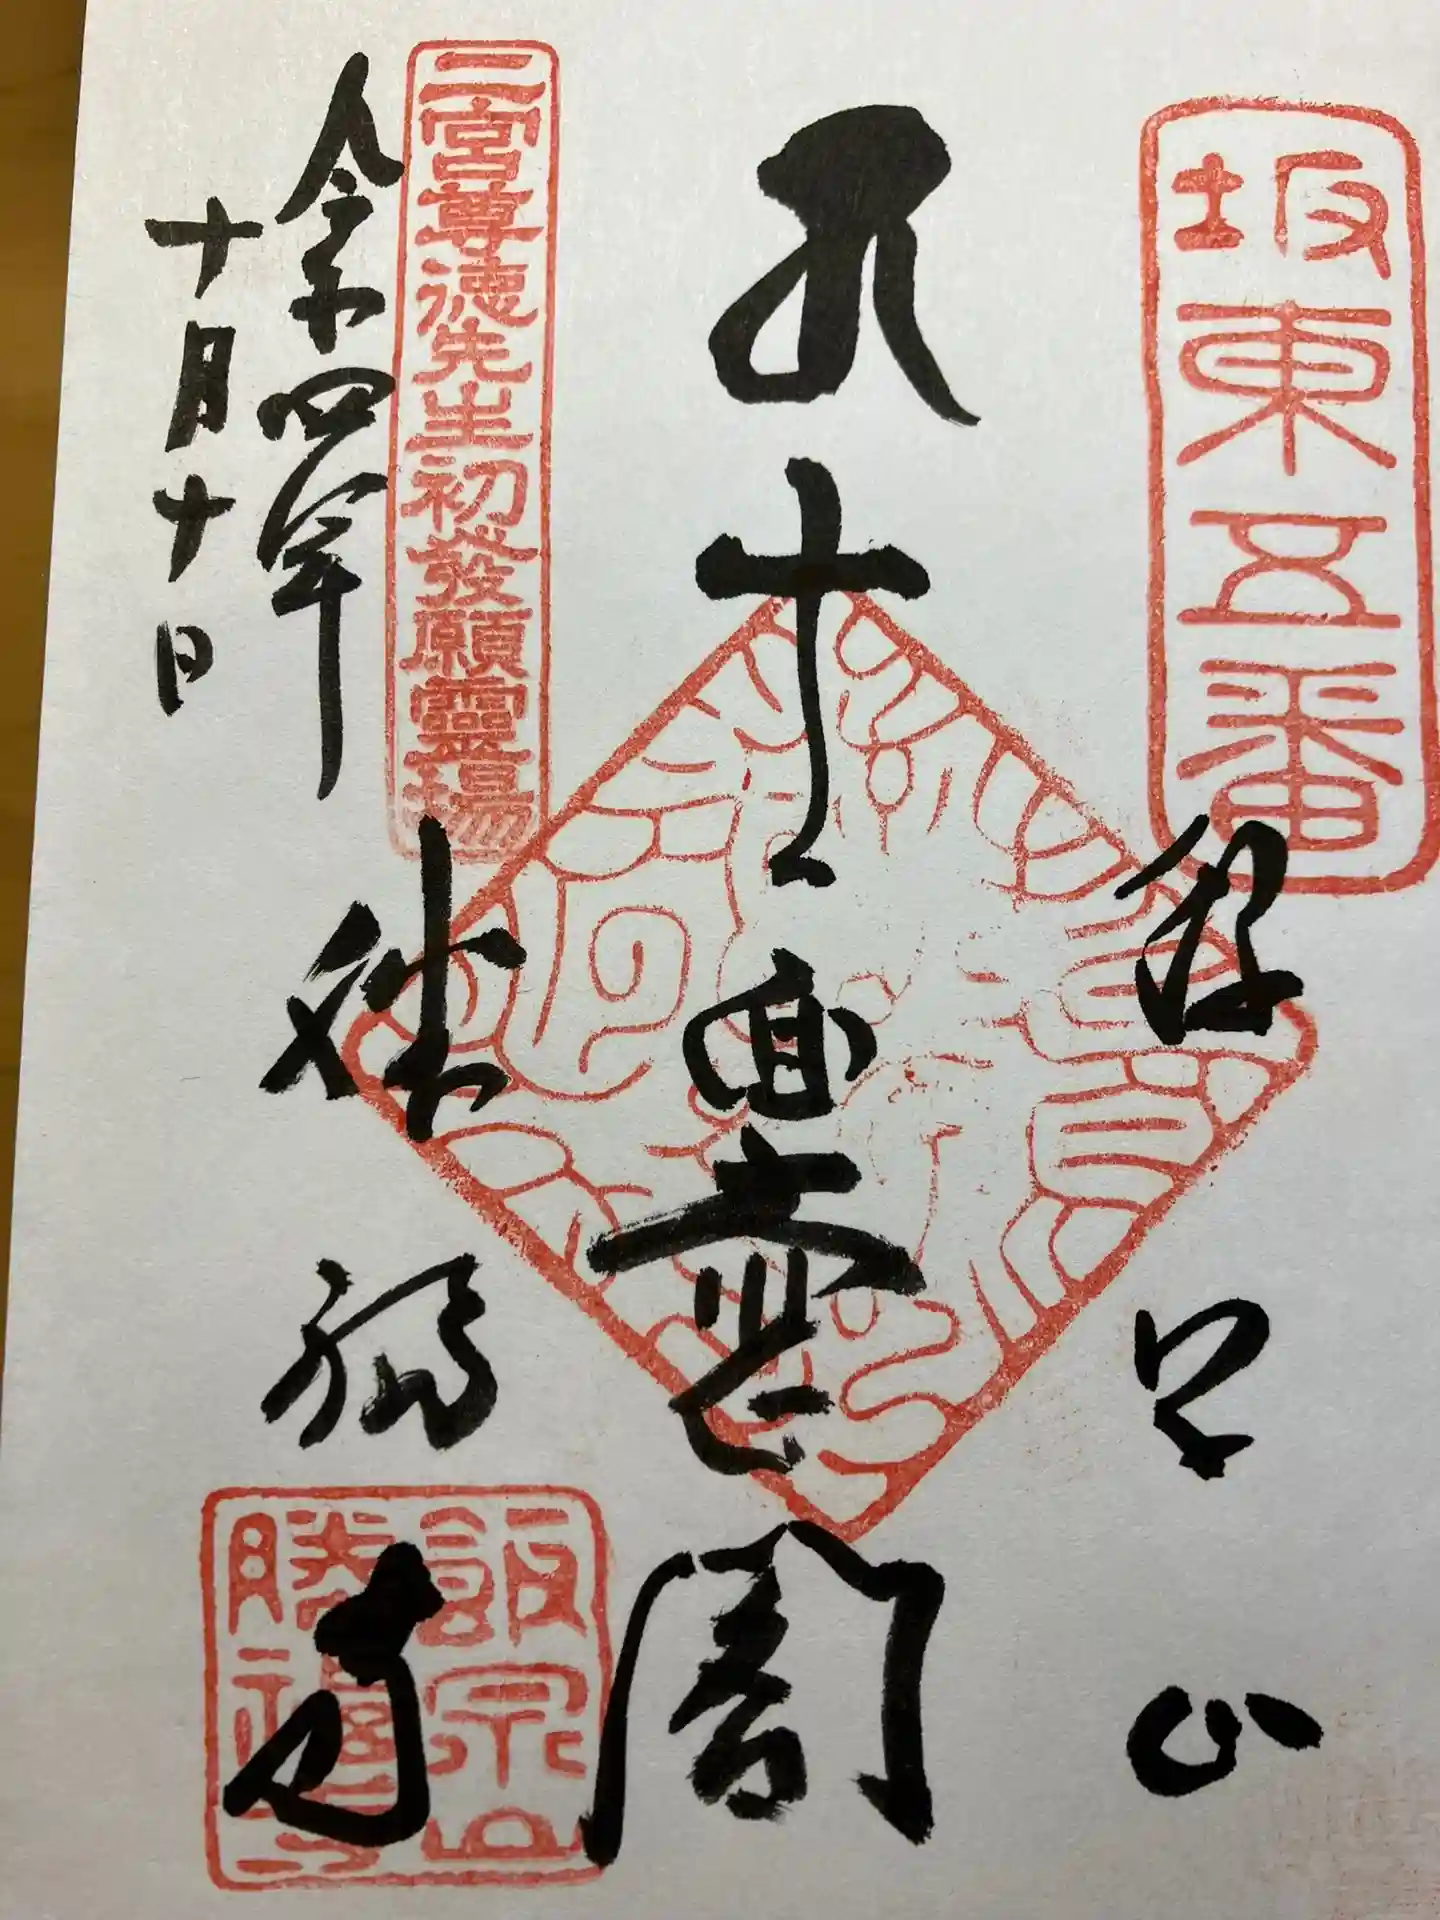 坂東五番
飯泉山
十一面大悲閣
二宮尊徳先生初發願靈場
勝福寺
令和四年
十月十日
飯泉山
勝福寺